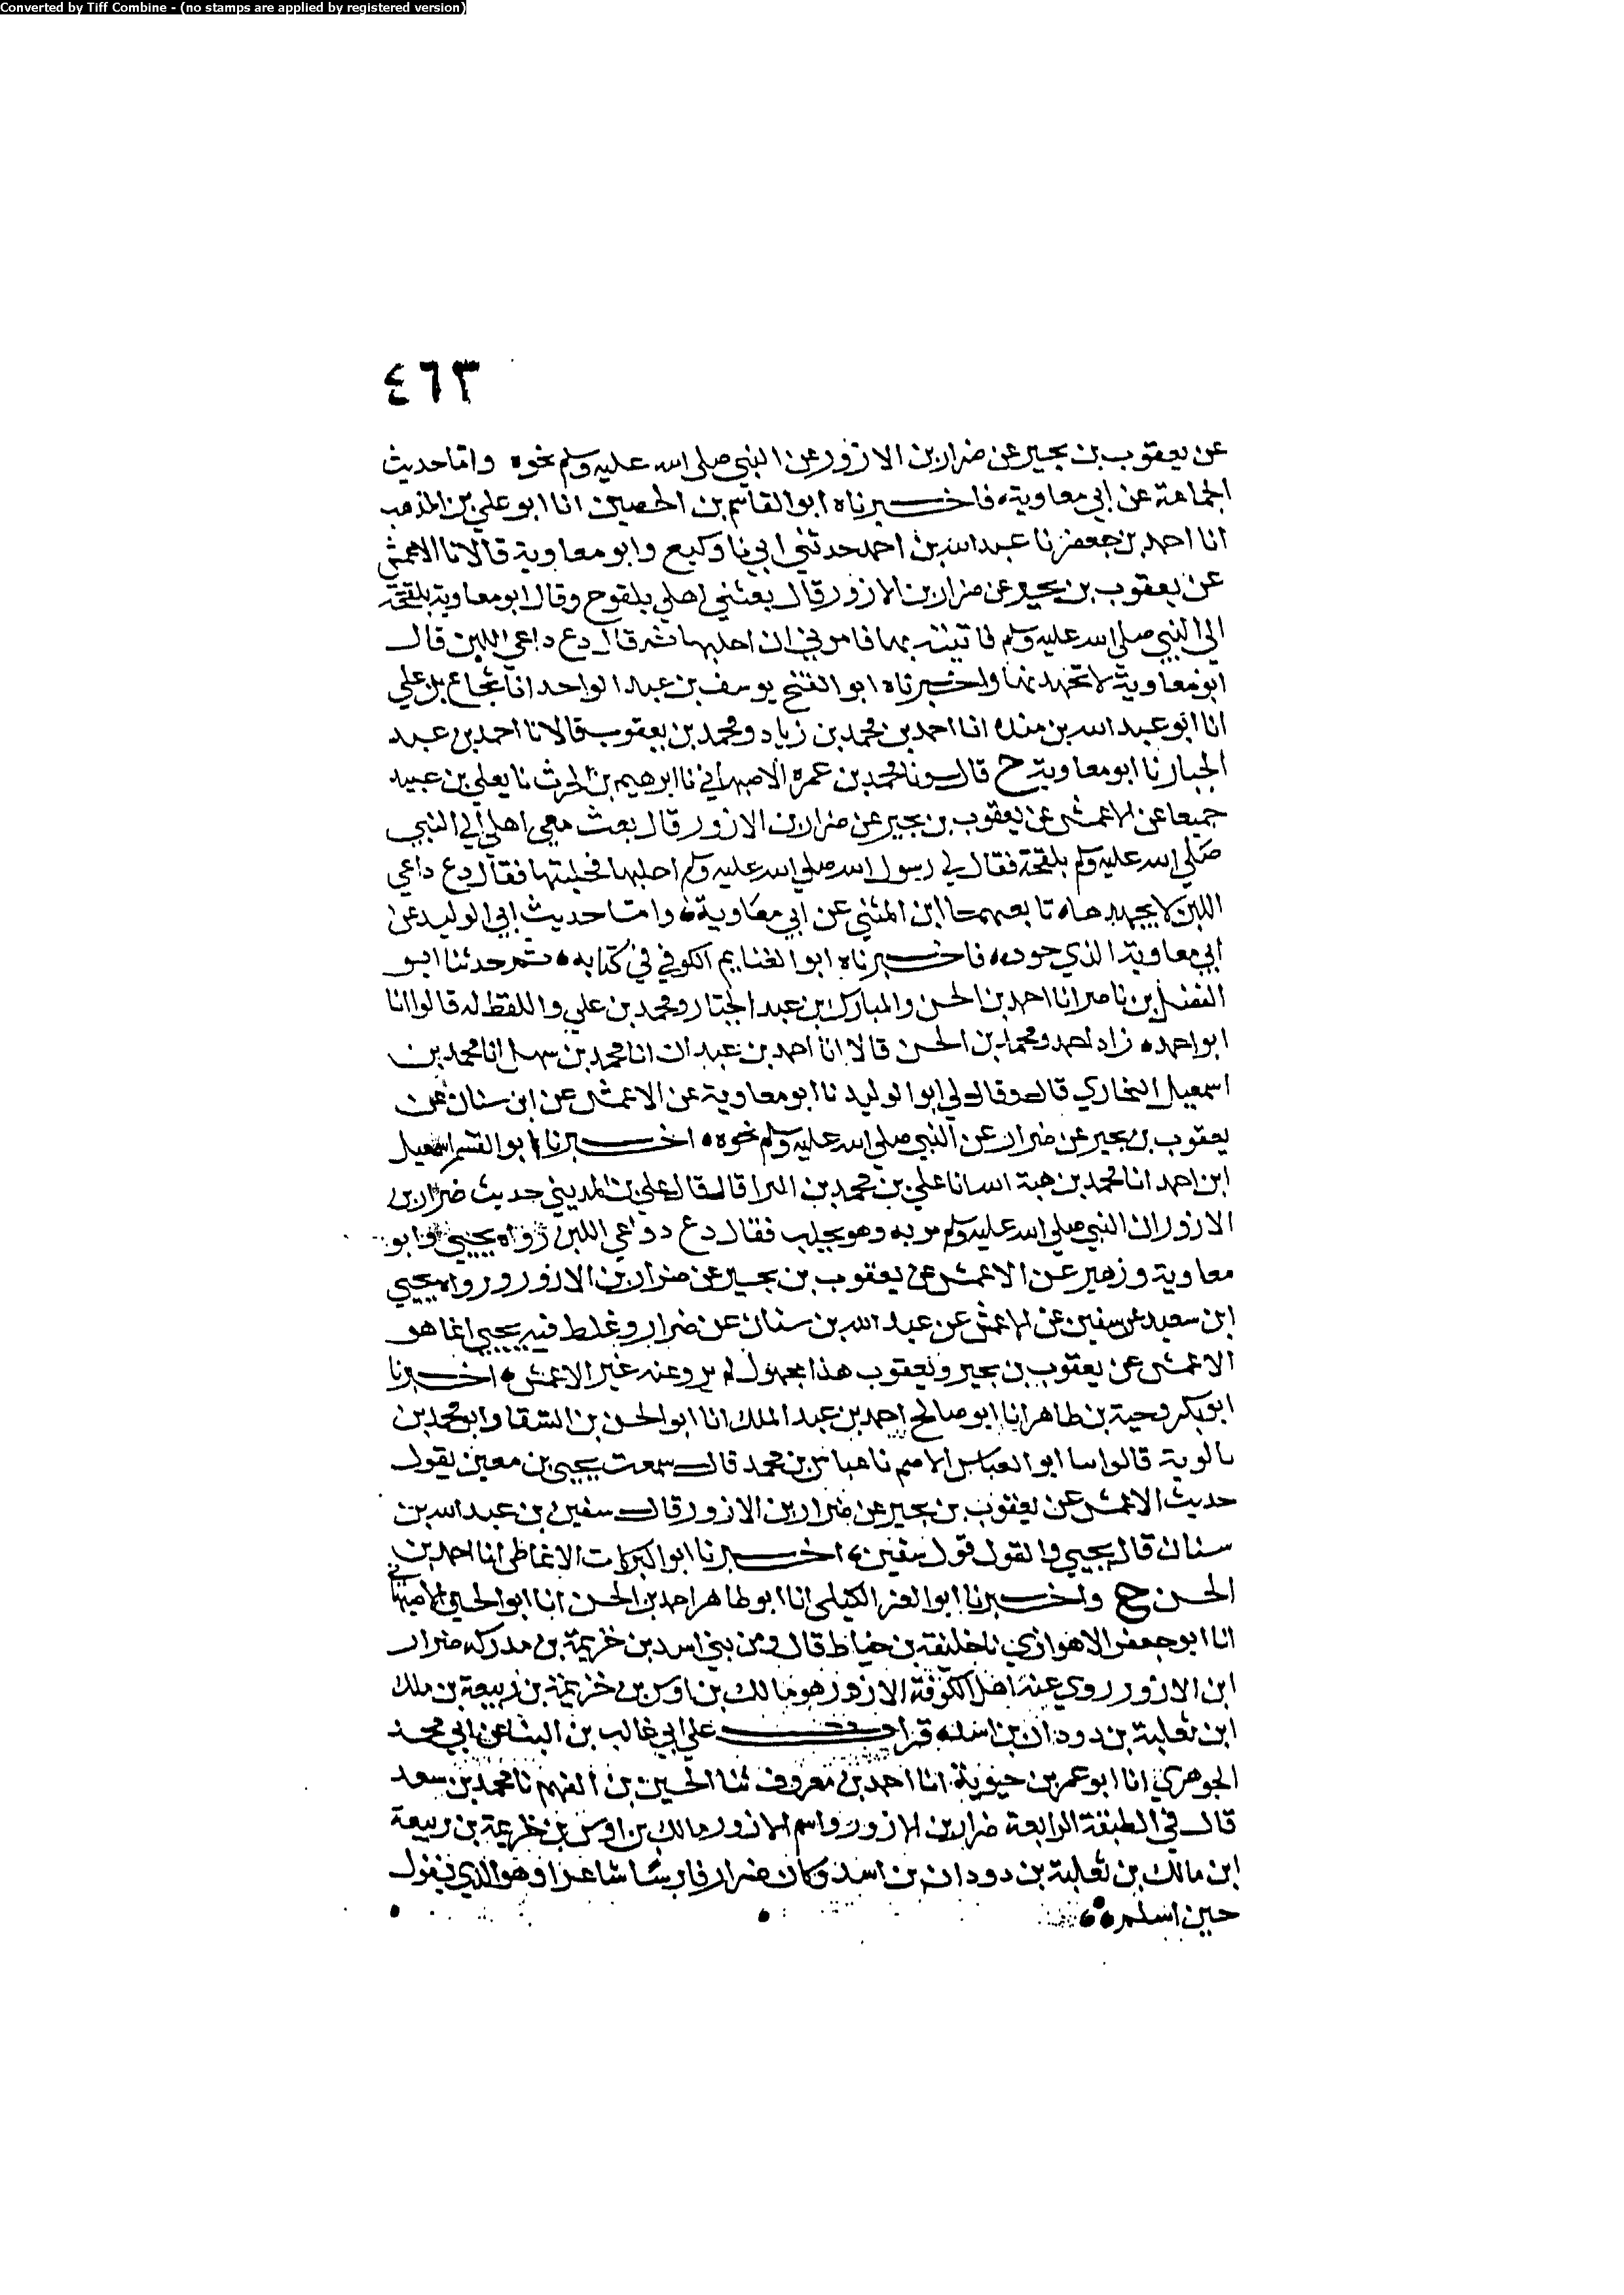 Converted by Tiff Combine - (no stamps are applied by registered version)
٤٦٣
عن يعقوب بن بجير عن ضرار بن الازور عن النبي صلى الله عليه وسلم نحوه واما حديث
الجماعة عن ابي معاوية فاخبرناه ابو القاسم بن الحصين انا ابو علي بن المذهب
انا احمد بن جعفر نا عبد الله بن احمد حدثني ابي نا وكيع وابو معاوية قالا نا الاعمش
عن يعقوب بن بجير عن ضرار بن الازور قال بعثني اهلي بلقوح وقال ابو معاوية بلقحة
الى النبي صلى الله عليه وسلم فاتيته بها فامرني ان احلبها ثم قال دع داعي اللبن قال
ابو معاوية لا تجهدنها واخبرناه ابو الفتح يوسف بن عبد الواحد انا شجاع بن علي
انا ابو عبد الله بن منده انا احمد بن محمد بن زياد ومحمد بن يعقوب قالا نا احمد بن عبد
الجبار نا ابو معاوية ح قال ونا محمد بن عمرة الاصبهاني نا ابرهيم بن الحرث نا يعلي بن عبيد
جميعا عن الاعمش عن يعقوب بن بجير عن ضرار بن الازور قال بعث معي اهلي الي النبي
صلي الله عليه وسلم بلقحة فقال لي رسول الله صلي الله عليه وسلم احلبها فحلبتها فقال دع داعي
اللبن لا يجهدها تابعهما ابن المثني عن ابي معاوية واما حديث ابي الوليد عن
ابي معاوية الذي جوده فاخبرناه ابو الغنايم الكوفي في كتابه ثم حدثنا ابو
الفضل بن ناصر انا احمد بن الحسن والمبارك بن عبد الجبار ومحمد بن علي واللفظ له قالوا انا
ابو احمد زاد احمد ومحمد بن الحسن قالا انا احمد بن عبدان انا محمد بن سهل انا محمد بن
اسمعيل البخاري قال وقال لي ابو الوليد نا ابو معاوية عن الاعمش عن ابن سنان عن
يعقوب بن بجير عن ضرار عن النبي صلي الله عليه وسلم نحوه اخبرنا ابو القسم اسمعيل
ابن احمد انا محمد بن هبة الله انا علي بن محمد بن البرا قال قال علي بن المديني حديث ضرار بن
الازور ان النبي صلي الله عليه وسلم مر به وهو يحلب فقال دع دواعي اللبن رواه يحيي وابو
معاوية وزهير عن الاعمش عن يعقوب بن بجير عن ضرار بن الازور ورواه يحيي
ابن سعيد عن سفين عن الاعمش عن عبد الله بن سنان عن ضرار وغلط فيه يحيي انما هو
الاعمش عن يعقوب بن بجير ويعقوب هذا مجهول لم يرو عنه غير الاعمش اخبرنا
ابو بكر وجيه بن طاهر انا ابو صالح احمد بن عبد الملك انا ابو الحسن بن السقا وابو محمد بن
بالوية قالوا نا ابو العباس الاصم نا عباس بن محمد قال سمعت يحيي بن معين يقول
حديث الاعمش عن يعقوب بن بجير عن ضرار بن الازور قال سفين بن عبد الله بن
سنان قال يحيي والقول قول سفين اخبرنا ابو البركات الانماطي انا احمد بن
الحسن ح واخبرنا ابو العز الكيلي انا ابو طاهر احمد بن الحسن انا ابو الحسين الاصبهاني
انا ابو جعفر الاهوازي نا خليفة بن خياط قال ومن بني اسد بن خزيمة بن مدركه ضرار
ابن الازور روي عنه اهل الكوفة الازور هو مالك بن اوس بن خزيمة بن ربيعة بن ملك
ابن ثعلبة بن دودان بن اسد قرات علي ابي غالب بن البنا عن ابي محمد
الجوهري انا ابو عمر بن حيوية انا احمد بن معروف نا الحسين بن الفهم نا محمد بن سعد
قال في الطبقة الرابعة ضرار بن الازور واسم الازور مالك بن اوس بن خزيمة بن ربيعة
ابن مالك بن ثعلبة بن دودان بن اسد وكان ضرار فارسا شاعرا وهو الذي يقول
حين اسلم